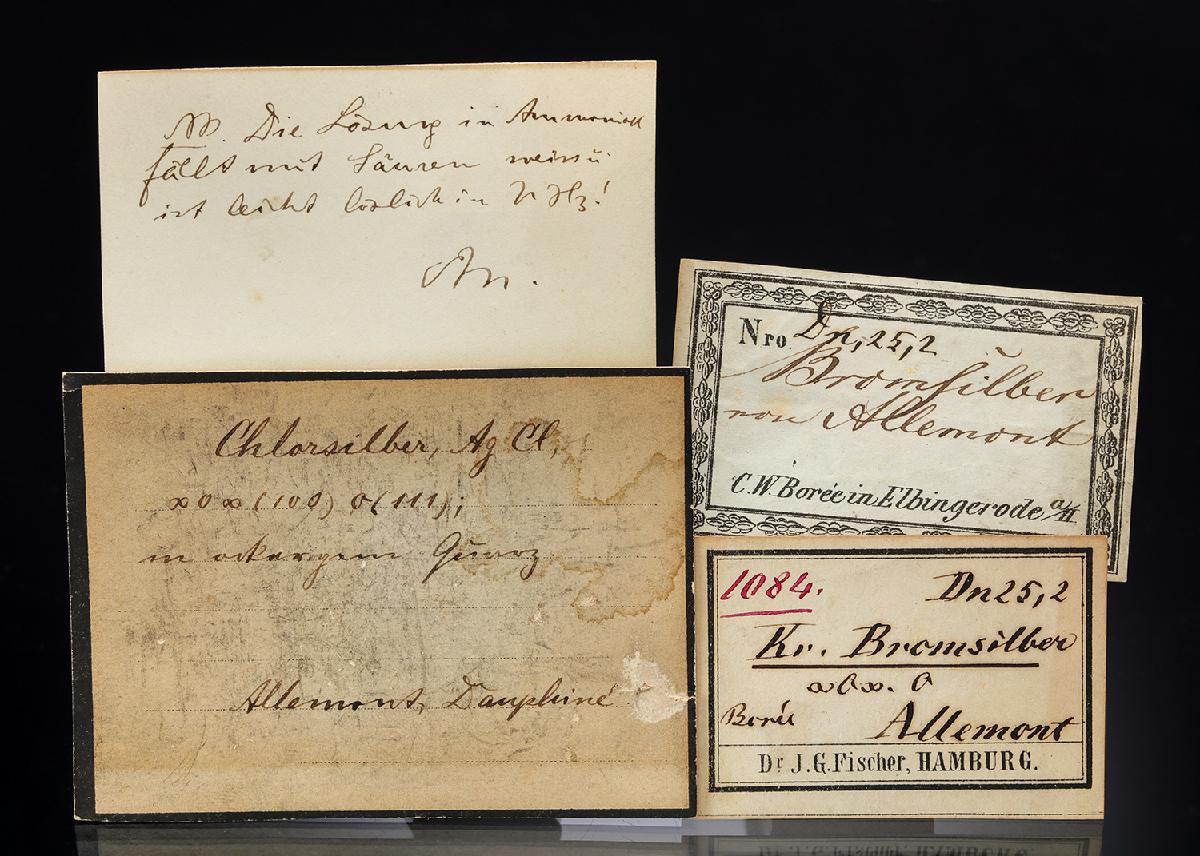 NB. Die Lösung in Ammoniak
fällt mit Säuren weiss u
ist leicht löslich in NH3!
An.
Chlorsilber, Ag Cl,
∞0∞ (100) 0 (111);
in ockergem Quarz
Allemont, Dauphiné
Nro Dn, 25, 2
Bromsilber
von Allemont
C.W Borée in Elbingerode a/H
1084. Dn 25, 2
Kr. Bromsilber
∞0∞. 0
Borée Allemont
Dr J.G. Fischer, HAMBURG.